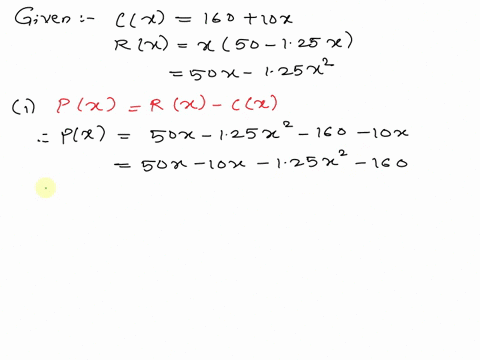 Given :- C(x) = 160 + 10x
R(x) = x(50 - 1.25x)
= 50x - 1.25x²
(1) P(x) = R(x) - C(x)
∴ P(x) = 50x - 1.25x² - 160 - 10x
= 50x - 10x - 1.25x² - 160